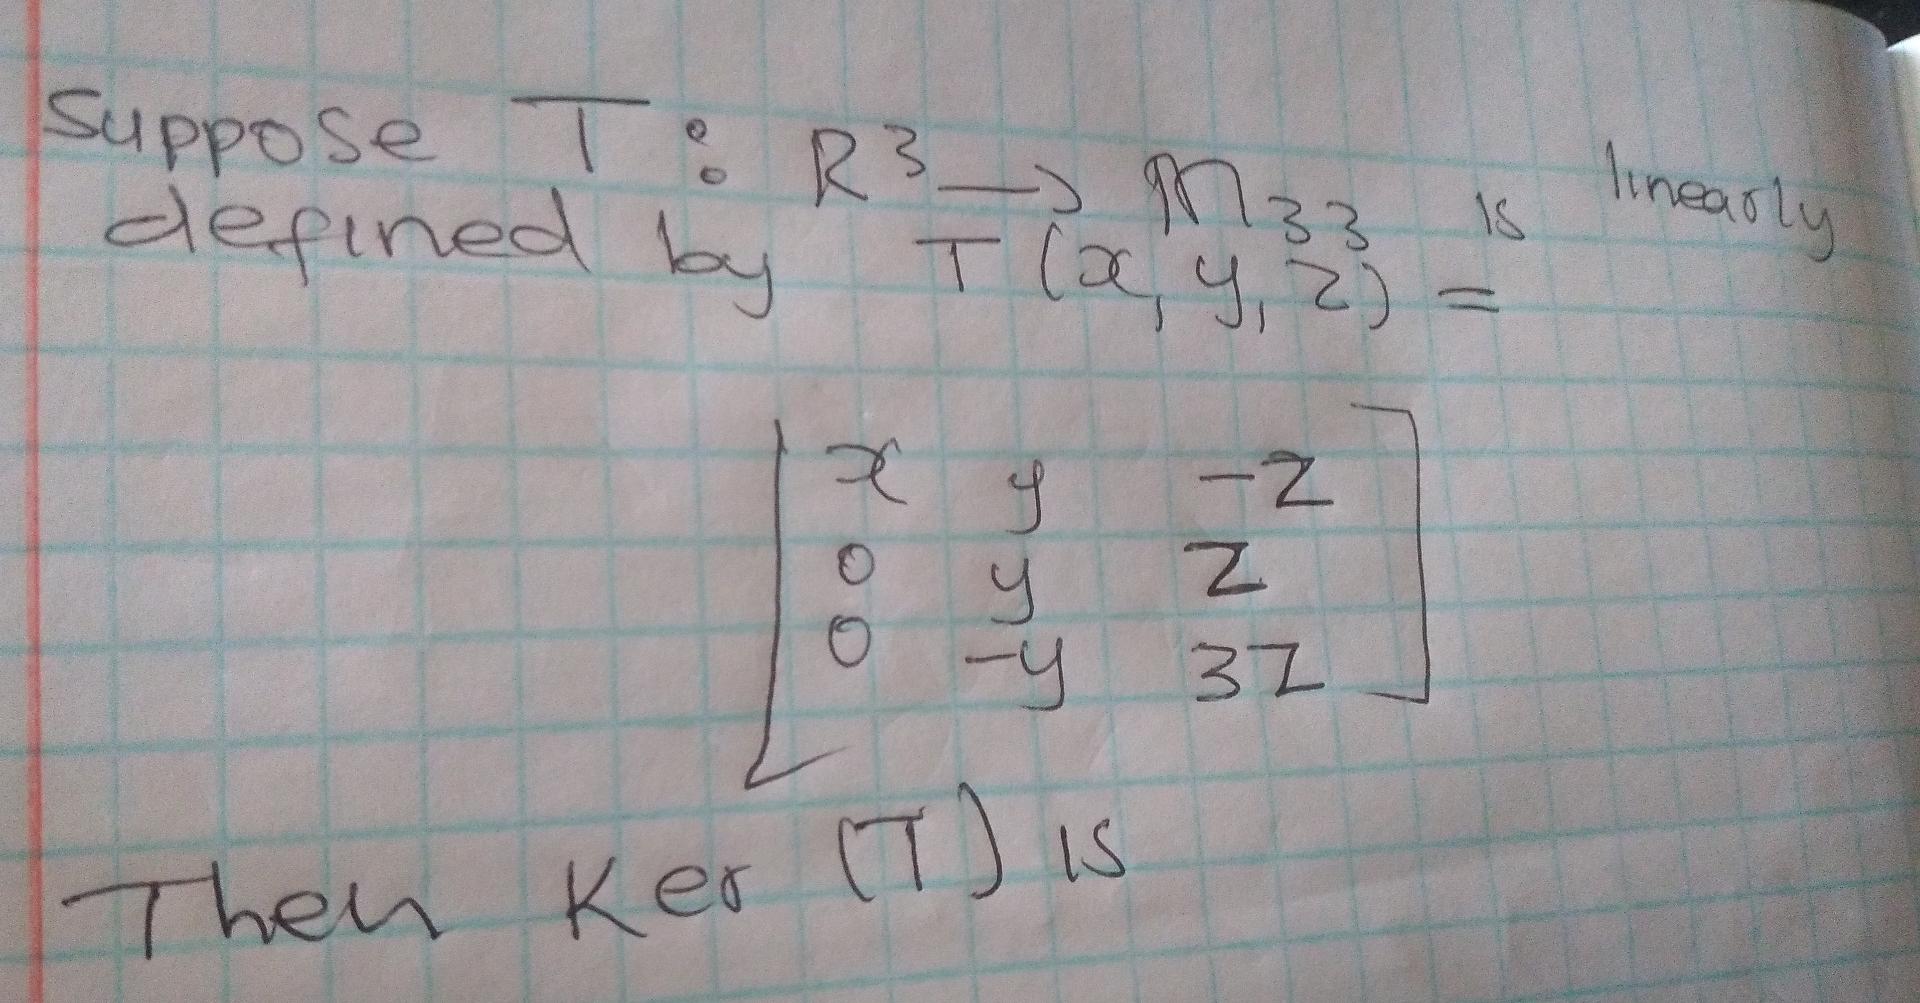 Suppose T : R³ → M₃₃ is linearly
defined by T(x, y, z) =
x y -z
0 y z
0 -y 3z
Then Ker (T) is